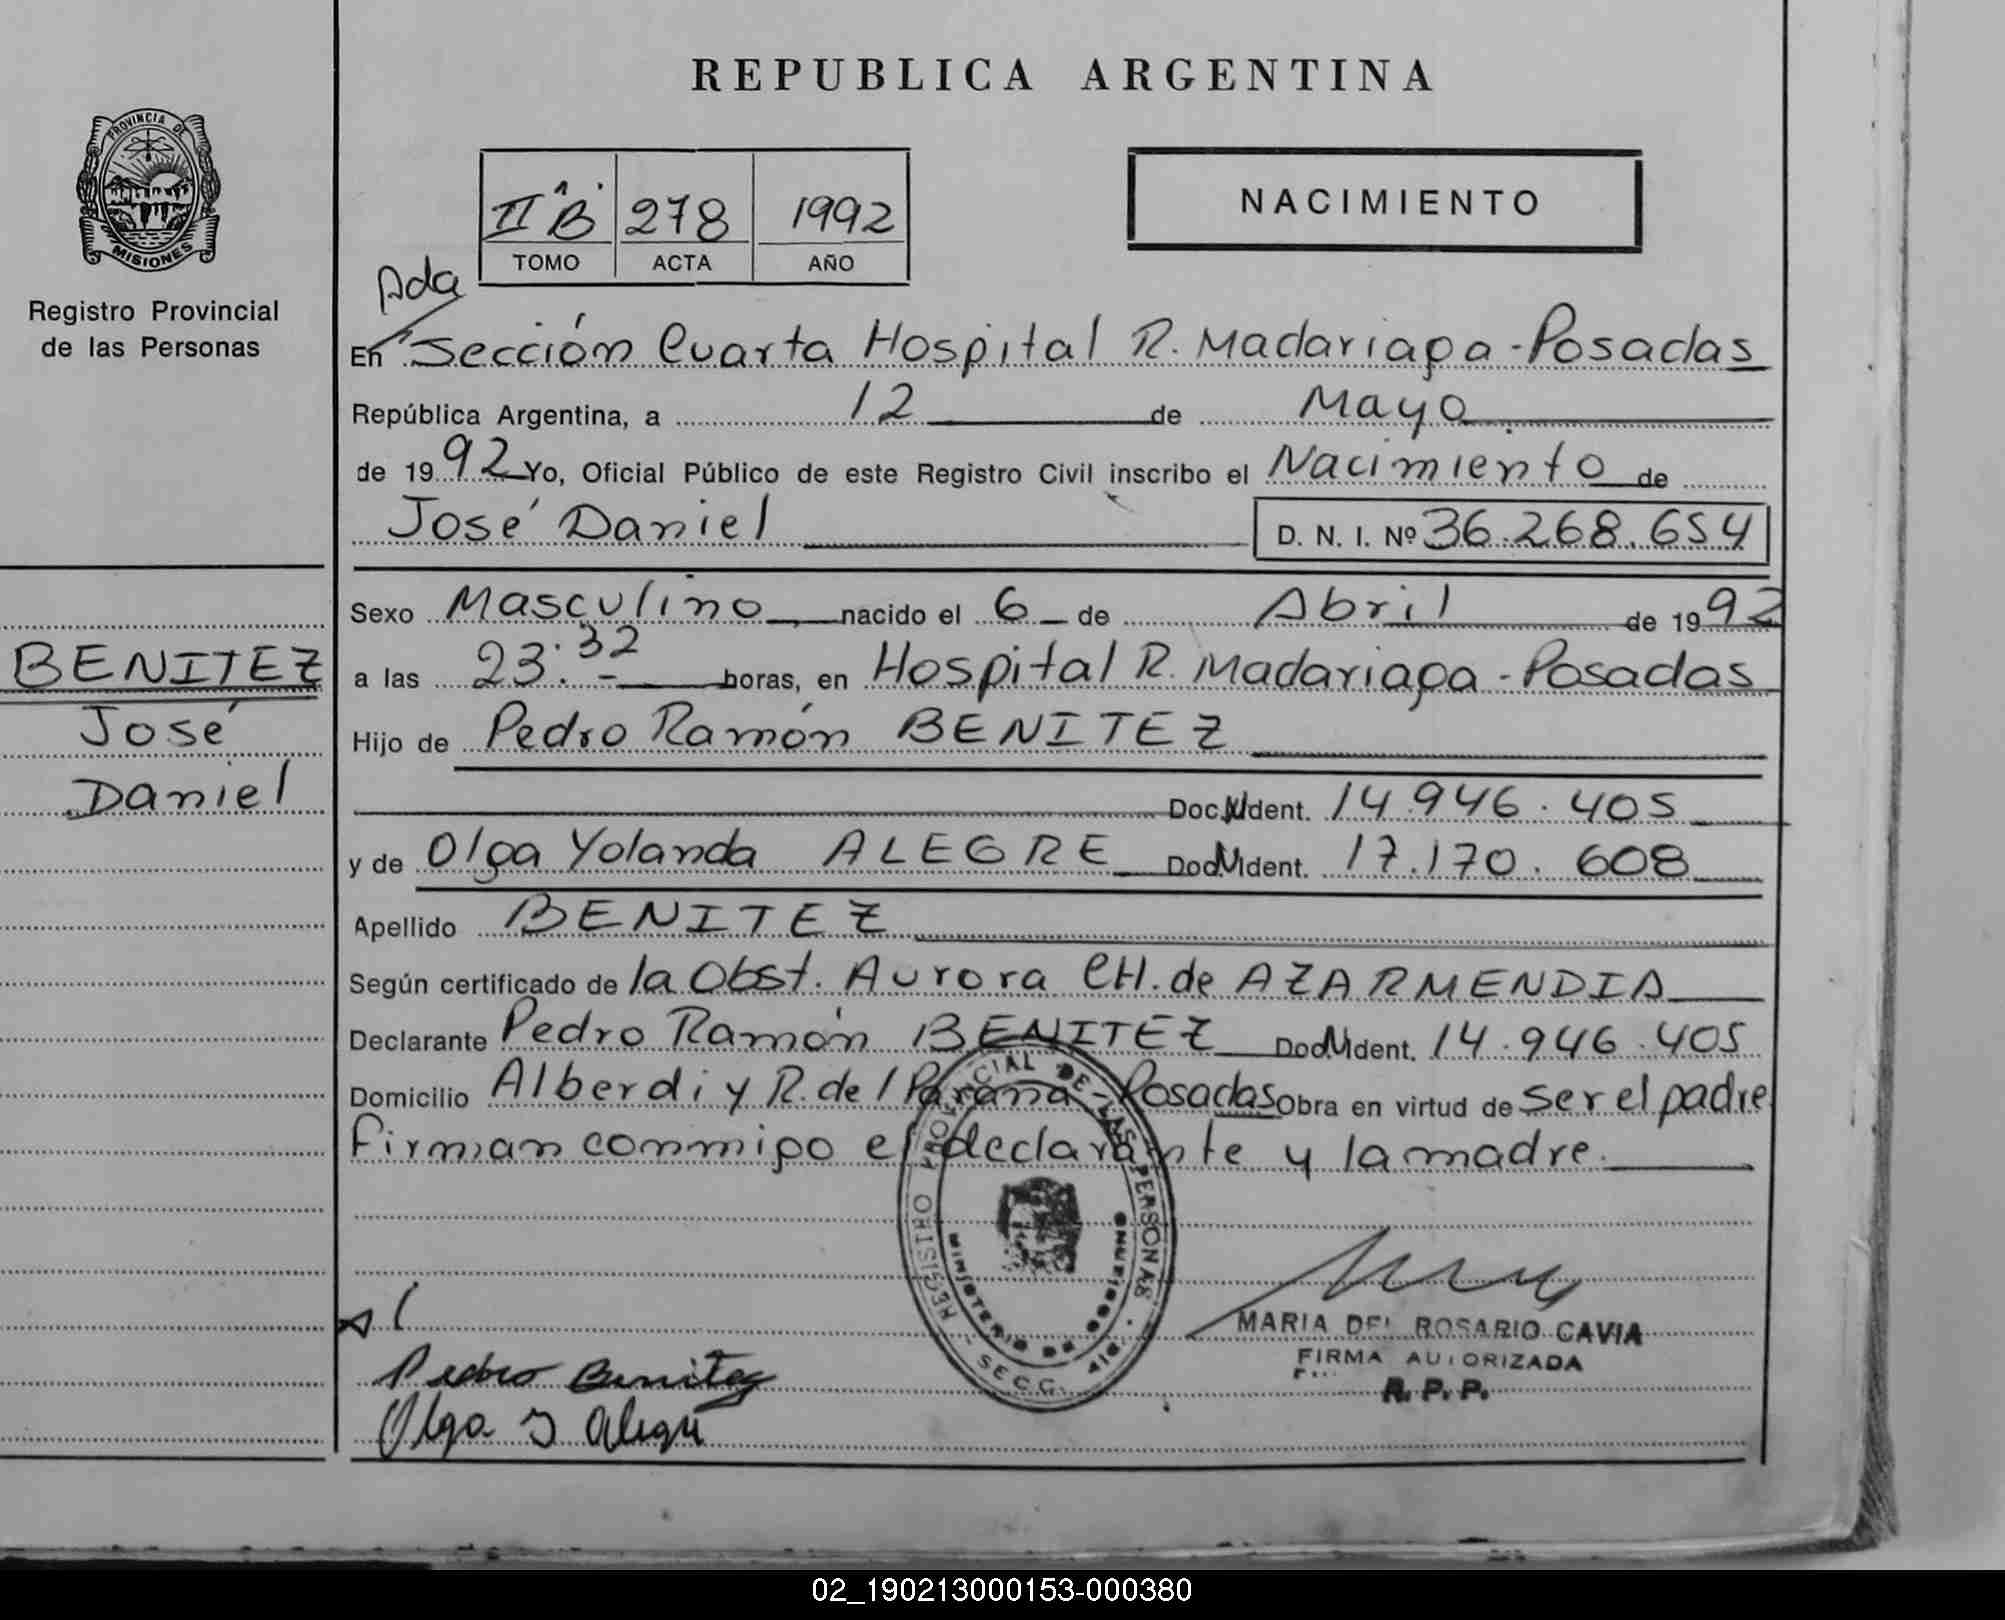 REPUBLICA ARGENTINA
PROVINCIA DE
MISIONES
Registro Provincial
de las Personas
BENITEZ
José
Daniel
IIº B 278 1992
TOMO ACTA AÑO
NACIMIENTO
Ada
En Sección Cuarta Hospital R. Madariaga - Posadas
República Argentina, a 12 de Mayo
de 1992 Yo, Oficial Público de este Registro Civil inscribo el Nacimiento de
José Daniel D. N. I. Nº 36.268.654
Sexo Masculino, nacido el 6 de Abril de 1992
a las 23:32 horas, en Hospital R. Madariaga - Posadas
Hijo de Pedro Ramón BENITEZ
Doc. N Ident. 14.946.405
y de Olga Yolanda ALEGRE Doc. N Ident. 17.170.608
Apellido BENITEZ
Según certificado de la Obst. Aurora CH. de AZARMENDIA
Declarante Pedro Ramón BENITEZ Doc. N Ident. 14.946.405
Domicilio Alberdi y R. del Paraná - Posadas Obra en virtud de ser el padre
Firman conmigo el declarante y la madre.
REGISTRO PROVINCIAL DE LAS PERSONAS
MINISTERIO DE GOBIERNO
SECC.
Pedro Benitez
Olga Y Alegre
MARIA DEL ROSARIO CAVIA
FIRMA AUTORIZADA
R. P. P.
02_190213000153-000380